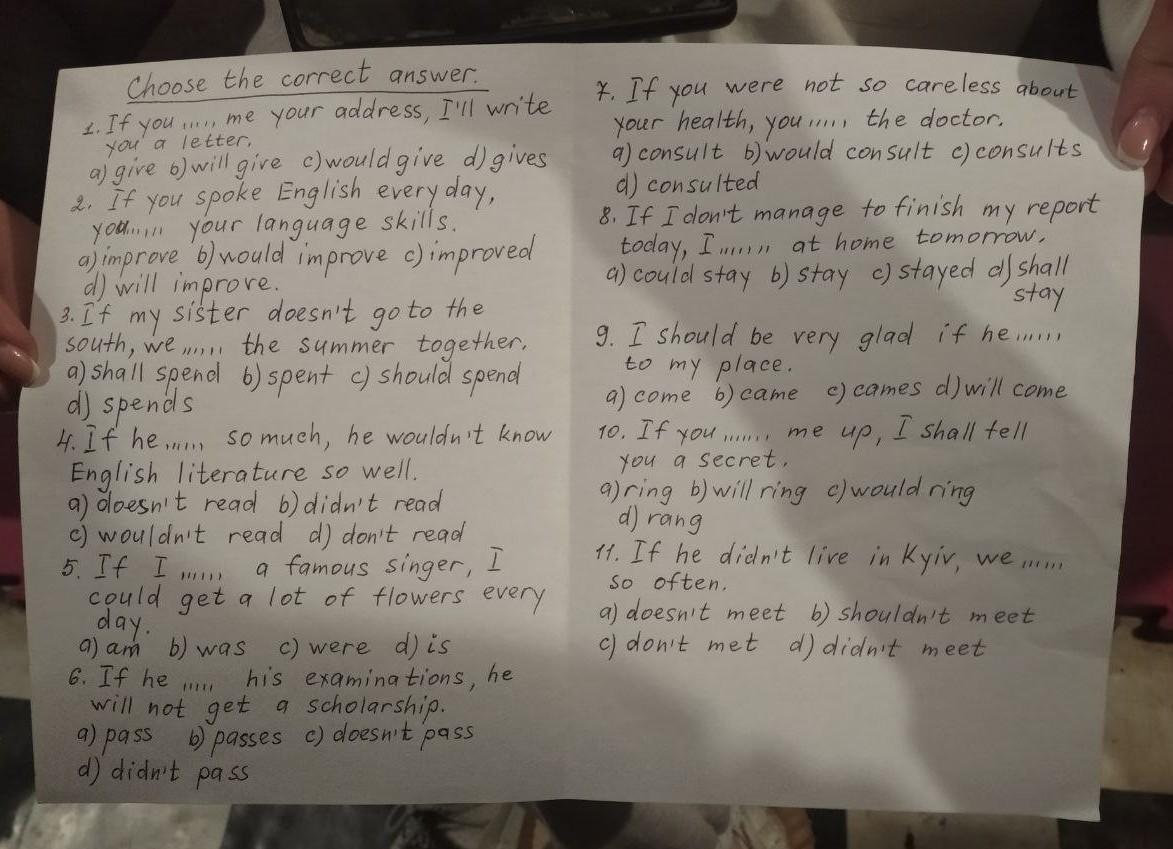 Choose the correct answer.
1. If you ...... me your address, I'll write
you a letter.
a) give b) will give c) would give d) gives
2. If you spoke English every day,
you...... your language skills.
a) improve b) would improve c) improved
d) will improve.
3. If my sister doesn't go to the
south, we ...... the summer together.
a) shall spend b) spent c) should spend
d) spends
4. If he ...... so much, he wouldn't know
English literature so well.
a) doesn't read b) didn't read
c) wouldn't read d) don't read
5. If I ...... a famous singer, I
could get a lot of flowers every
day.
a) am b) was c) were d) is
6. If he ..... his examinations, he
will not get a scholarship.
a) pass b) passes c) doesn't pass
d) didn't pass
7. If you were not so careless about
your health, you ...... the doctor.
a) consult b) would consult c) consults
d) consulted
8. If I don't manage to finish my report
today, I ....... at home tomorrow.
a) could stay b) stay c) stayed d) shall
stay
9. I should be very glad if he ......
to my place.
a) come b) came c) cames d) will come
10. If you ....... me up, I shall tell
you a secret.
a) ring b) will ring c) would ring
d) rang
11. If he didn't live in Kyiv, we ......
so often.
a) doesn't meet b) shouldn't meet
c) don't met d) didn't meet